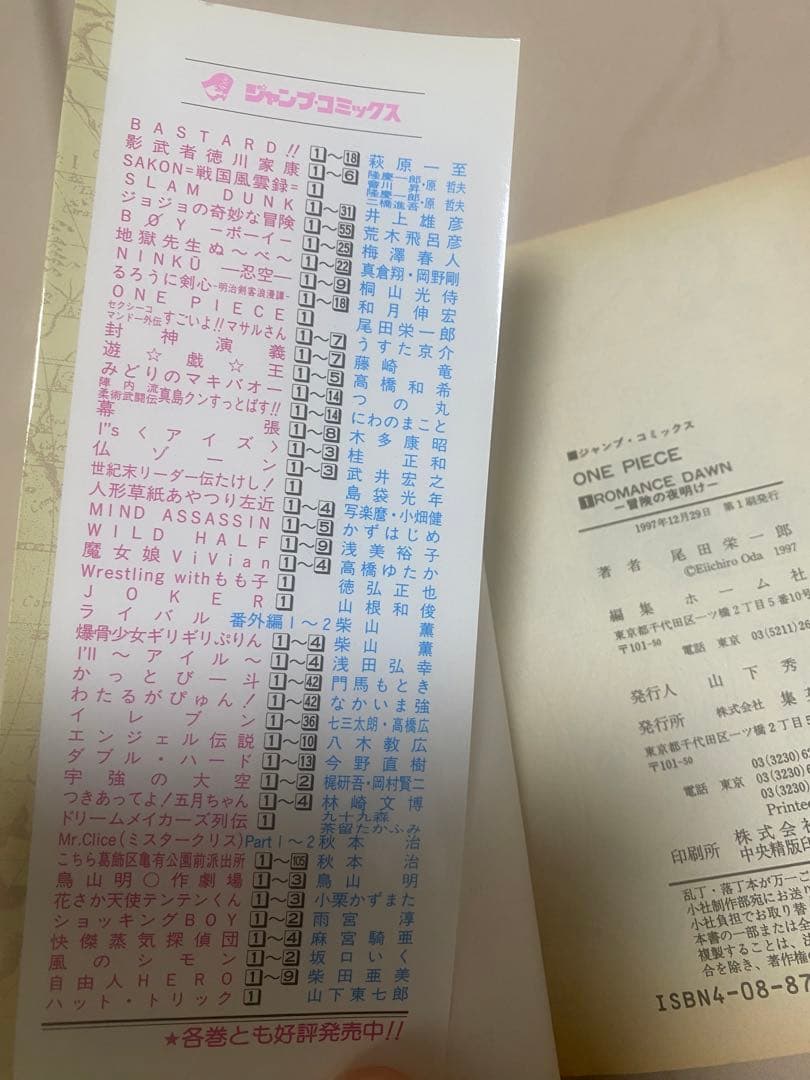 ジャンプ・コミックス
BASTARD!! 1〜18 萩原一至
影武者徳川家康 1〜6 隆慶一郎・原 哲夫 會川 昇
SAKON=戦国風雲録= 1 隆慶一郎・原 哲夫 二橋進吾
SLAM DUNK 1〜31 井上雄彦
ジョジョの奇妙な冒険 1〜55 荒木飛呂彦
BØY ーボーイー 1〜25 梅澤春人
地獄先生ぬ〜べ〜 1〜22 真倉翔・岡野剛
NINKŪ ―忍空― 1〜9 桐山光侍
るろうに剣心-明治剣客浪漫譚- 1〜18 和月伸宏
ONE PIECE 1 尾田栄一郎
セクシーコマンドー外伝 すごいよ!!マサルさん 1〜7 うすた京介
封神演義 1〜7 藤崎 竜
遊☆戯☆王 1〜5 高橋和希
みどりのマキバオー 1〜14 つの丸
陣内流柔術武闘伝 真島クンすっとばす!! 1〜14 にわのまこと
幕張 1〜8 木多康昭
I"s〈アイズ〉 1〜3 桂 正和
仏ゾーン 1〜3 武井宏之
世紀末リーダー伝たけし! 1 島袋光年
人形草紙あやつり左近 1〜4 写楽麿・小畑健
MIND ASSASSIN 1〜5 かずはじめ
WILD HALF 1〜9 浅美裕子
魔女娘ViVian 1〜4 高橋ゆたか
Wrestling withもも子 1 徳弘正也
JOKER 1 山根和俊
ライバル 番外編1〜2 柴山 薫
爆骨少女ギリギリぷりん 1〜4 柴山 薫
I'll 〜アイル〜 1〜4 浅田弘幸
かっとび一斗 1〜42 門馬もとき
わたるがぴゅん! 1〜42 なかいま強
イレブン 1〜36 七三太朗・高橋広
エンジェル伝説 1〜10 八木教広
ダブル・ハード 1〜13 今野直樹
宇強の大空 1〜2 梶研吾・岡村賢二
つきあってよ!五月ちゃん 1〜4 林崎文博
ドリームメイカーズ列伝 1 九十九森 茶留たかふみ
Mr.Clice(ミスタークリス)Part1〜2 秋本 治
こちら葛飾区亀有公園前派出所 1〜105 秋本 治
鳥山明〇作劇場 1〜3 鳥山 明
花さか天使テンテンくん 1〜3 小栗かずまた
ショッキングBOY 1〜2 雨宮 淳
快傑蒸気探偵団 1〜4 麻宮騎亜
風のシモン 1〜2 坂口いく
自由人HERO 1〜9 柴田亜美
ハット・トリック 1 山下東七郎
★各巻とも好評発売中!!
■ジャンプ・コミックス
ONE PIECE
1 ROMANCE DAWN
ー冒険の夜明けー
1997年12月29日 第1刷発行
著者 尾田栄一郎
©Eiichiro Oda 1997
編集 ホーム社
東京都千代田区一ツ橋2丁目5番10号
〒101-50 電話 東京 03(5211)26
発行人 山下秀
発行所 株式会社 集
東京都千代田区一ツ橋2丁
〒101-50
03(3230)6
電話 東京 03(3230)6
03(3230)
Printed
印刷所 株式会社
中央精版印
乱丁・落丁本が万一ご
小社制作部宛にお送
小社負担でお取り替
本書の一部または全
複製することは、法
合を除き、著作権の
ISBN4-08-87